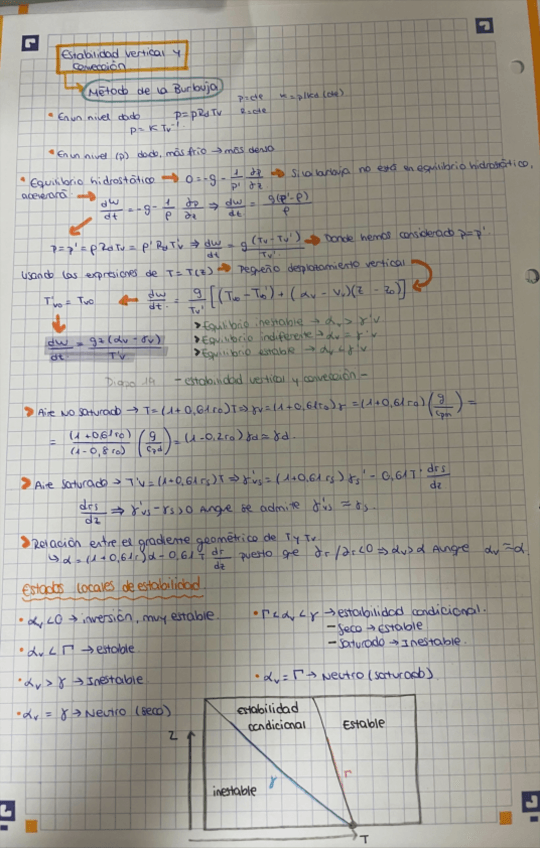 Estabilidad vertical y
convección
Método de la Burbuja
• En un nivel dado p=ρRdTv p=cte R=cte K=p/Rd (cte)
ρ=KTv⁻¹
• En un nivel (p) dado, más frío → más denso
• Equilibrio hidrostático → 0=-g-1/ρ' ∂p/∂z → Si la burbuja no está en equilibrio hidrostático,
acelerará → dw/dt=-g-1/ρ ∂p/∂z ⇒ dw/dt=g(ρ'-ρ)/ρ
p=p'=ρRdTv=ρ'RdT'v ⇒ dw/dt=g(Tv-Tv')/Tv' → Donde hemos considerado p=p'
Usando las expresiones de T=T(z) → Pequeño desplazamiento vertical
T'vo=Tvo ← dw/dt=g/Tv'[(Tvo-Tvo')+(αv-γv)(z-zo)]
dw/dt=gz(αv-γv)/T'v
> Equilibrio inestable → αv>γ'v
> Equilibrio indiferente → αv=γ'v
> Equilibrio estable → αv<γ'v
- estabilidad vertical y convección -
> Aire No saturado → T=(1+0,61r0)T⇒γv=(1+0,61r0)γ=(1+0,61r0)(g/cpm)=
=(1+0,61r0)/(1-0,8r0)(g/cpd)=(1-0,2r0)γd≃γd.
> Aire saturado → T'v=(1+0,61rs)T⇒γ'vs=(1+0,61rs)γs'-0,61T·drs/dz
drs/dz ⇒ γ'vs-γs>0 Aunqe se admite γ'vs≃γs.
> Relación entre el gradiente geométrico de T y Tv
↳ α=(1+0,61r)α-0,61T dr/dz puesto qe ∂r/∂z<0⇒αv>α Aunqe αv≃α.
Estados locales de estabilidad
• αv<0 → inversión, muy estable.
• Γ<αv<γ → estabilidad condicional.
- Seco → Estable
- Saturado → Inestable.
• αv<Γ → estable
• αv>γ → Inestable
• αv=Γ → Neutro (saturado).
• αv=γ → Neutro (seco)
estabilidad
condicional
Estable
Z
inestable
γ
Γ
T